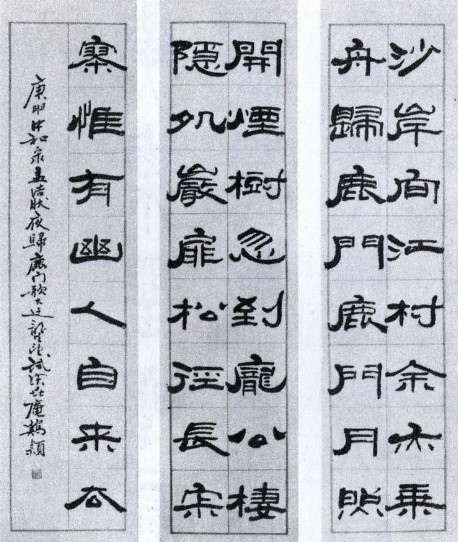 沙岸向江村余亦乘
舟歸鹿門鹿門月照
開煙樹忽到龐公棲
隱処巖扉松徑長寂
寥惟有幽人自来去
孟浩然夜歸鹿门歌